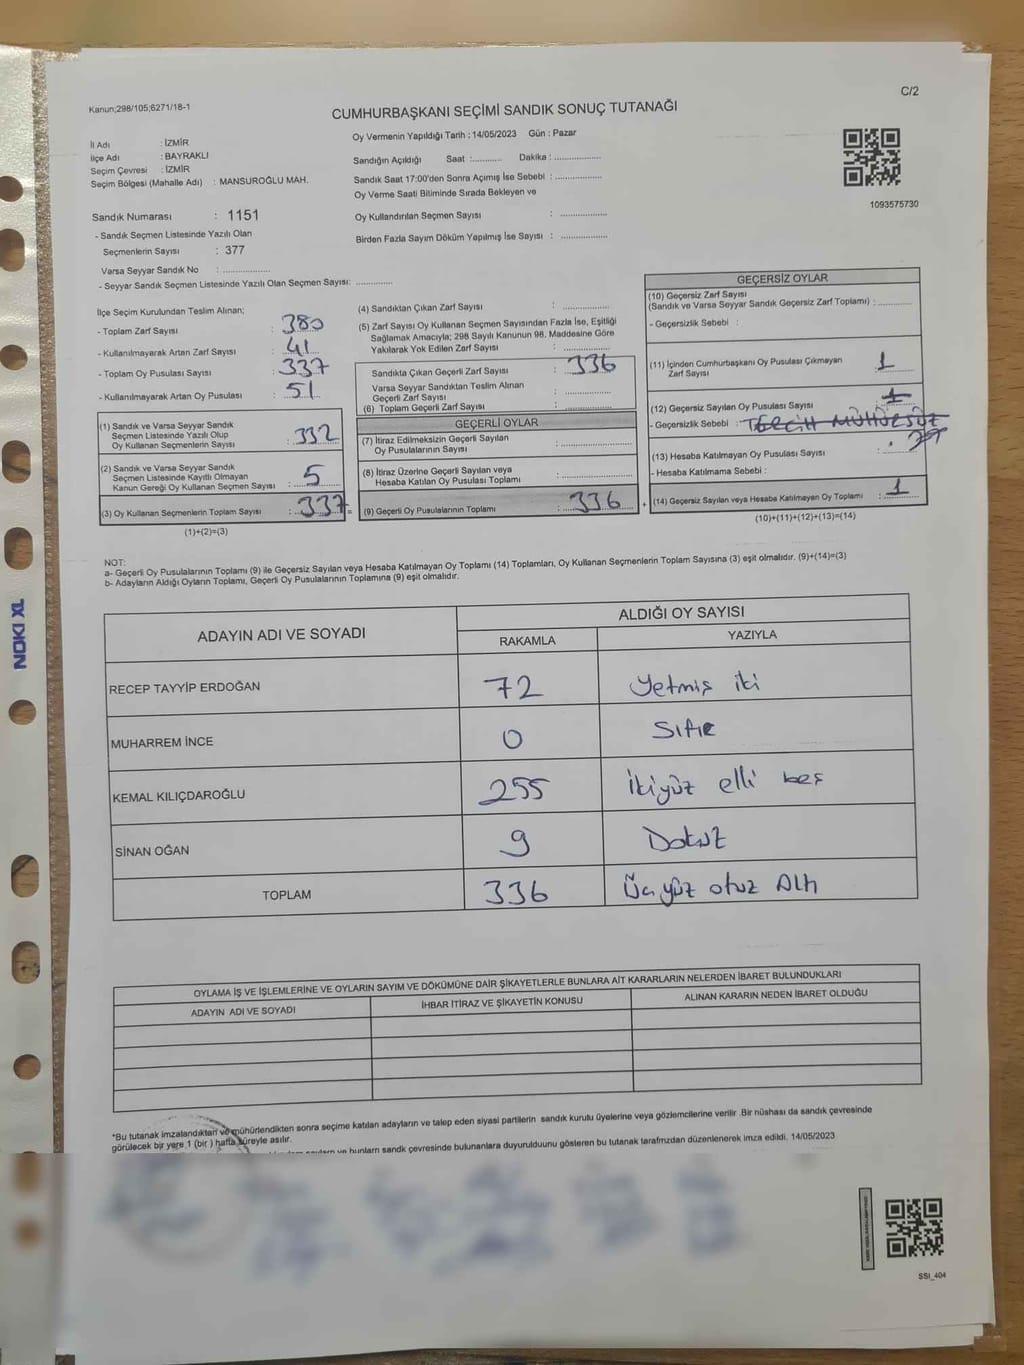 C/2
Kanun;298/105;6271/18-1
CUMHURBAŞKANI SEÇİMİ SANDIK SONUÇ TUTANAĞI
İl Adı : İZMİR
İlçe Adı : BAYRAKLI
Seçim Çevresi : İZMİR
Seçim Bölgesi (Mahalle Adı) : MANSUROĞLU MAH.
Sandık Numarası : 1151
- Sandık Seçmen Listesinde Yazılı Olan
Seçmenlerin Sayısı : 377
Varsa Seyyar Sandık No : ..................
- Seyyar Sandık Seçmen Listesinde Yazılı Olan Seçmen Sayısı: ..............
Oy Vermenin Yapıldığı Tarih : 14/05/2023 Gün : Pazar
Sandığın Açıldığı Saat :........... Dakika : ..................
Sandık Saat 17:00'den Sonra Açımış İse Sebebi : ..................
Oy Verme Saati Bitiminde Sırada Bekleyen ve
Oy Kullandırılan Seçmen Sayısı : ..................
Birden Fazla Sayım Döküm Yapılmış İse Sayısı : ..................
1093575730
İlçe Seçim Kurulundan Teslim Alınan;
- Toplam Zarf Sayısı : 380
- Kullanılmayarak Artan Zarf Sayısı : 41
- Toplam Oy Pusulası Sayısı : 337
- Kullanılmayarak Artan Oy Pusulası : 51
(1) Sandık ve Varsa Seyyar Sandık
Seçmen Listesinde Yazılı Olup
Oy Kullanan Seçmenlerin Sayısı : 332
(2) Sandık ve Varsa Seyyar Sandık
Seçmen Listesinde Kayıtlı Olmayan
Kanun Gereği Oy Kullanan Seçmen Sayısı : 5
(3) Oy Kullanan Seçmenlerin Toplam Sayısı : 337 =
(1)+(2)=(3)
(4) Sandıktan Çıkan Zarf Sayısı : ..................
(5) Zarf Sayısı Oy Kullanan Seçmen Sayısından Fazla İse, Eşitliği
Sağlamak Amacıyla; 298 Sayılı Kanunun 98. Maddesine Göre
Yakılarak Yok Edilen Zarf Sayısı : ..................
Sandıkta Çıkan Geçerli Zarf Sayısı : 336
Varsa Seyyar Sandıktan Teslim Alınan
Geçerli Zarf Sayısı : ..................
(6) Toplam Geçerli Zarf Sayısı : ..................
GEÇERLİ OYLAR
(7) İtiraz Edilmeksizin Geçerli Sayılan
Oy Pusulalarının Sayısı : ..................
(8) İtiraz Üzerine Geçerli Sayılan veya
Hesaba Katılan Oy Pusulası Toplamı : ..................
(9) Geçerli Oy Pusulalarının Toplamı : 336 +
GEÇERSİZ OYLAR
(10) Geçersiz Zarf Sayısı
(Sandık ve Varsa Seyyar Sandık Geçersiz Zarf Toplamı) : ............
- Geçersizlik Sebebi :
(11) İçinden Cumhurbaşkanı Oy Pusulası Çıkmayan
Zarf Sayısı : 1
(12) Geçersiz Sayılan Oy Pusulası Sayısı : 1
- Geçersizlik Sebebi : TERCİH MÜHÜRSÜZ
(13) Hesaba Katılmayan Oy Pusulası Sayısı :
- Hesaba Katılmama Sebebi :
(14) Geçersiz Sayılan veya Hesaba Katılmayan Oy Toplamı : 1
(10)+(11)+(12)+(13)=(14)
NOT:
a- Geçerli Oy Pusulalarının Toplamı (9) ile Geçersiz Sayılan veya Hesaba Katılmayan Oy Toplamı (14) Toplamları, Oy Kullanan Seçmenlerin Toplam Sayısına (3) eşit olmalıdır. (9)+(14)=(3)
b- Adayların Aldığı Oyların Toplamı, Geçerli Oy Pusulalarının Toplamına (9) eşit olmalıdır.
ADAYIN ADI VE SOYADI
ALDIĞI OY SAYISI
RAKAMLA YAZIYLA
RECEP TAYYİP ERDOĞAN 72 Yetmiş iki
MUHARREM İNCE 0 Sıfır
KEMAL KILIÇDAROĞLU 255 İkiyüz elli beş
SİNAN OĞAN 9 Dokuz
TOPLAM 336 Üçyüz otuz Altı
OYLAMA İŞ VE İŞLEMLERİNE VE OYLARIN SAYIM VE DÖKÜMÜNE DAİR ŞİKAYETLERLE BUNLARA AİT KARARLARIN NELERDEN İBARET BULUNDUKLARI
ADAYIN ADI VE SOYADI İHBAR İTİRAZ VE ŞİKAYETİN KONUSU ALINAN KARARIN NEDEN İBARET OLDUĞU
*Bu tutanak imzalandıktan ve mühürlendikten sonra seçime katılan adayların ve talep eden siyasi partilerin sandık kurulu üyelerine veya gözlemcilerine verilir .Bir nüshası da sandık çevresinde
görülecek bir yere 1 (bir ) hafta süreyle asılır.
ve bunların sandk çevresinde bulunanlara duyurulduunu gösteren bu tutanak tarafımızdan düzenlenerek imza edildi. 14/05/2023
SSI_404
NOKI XL